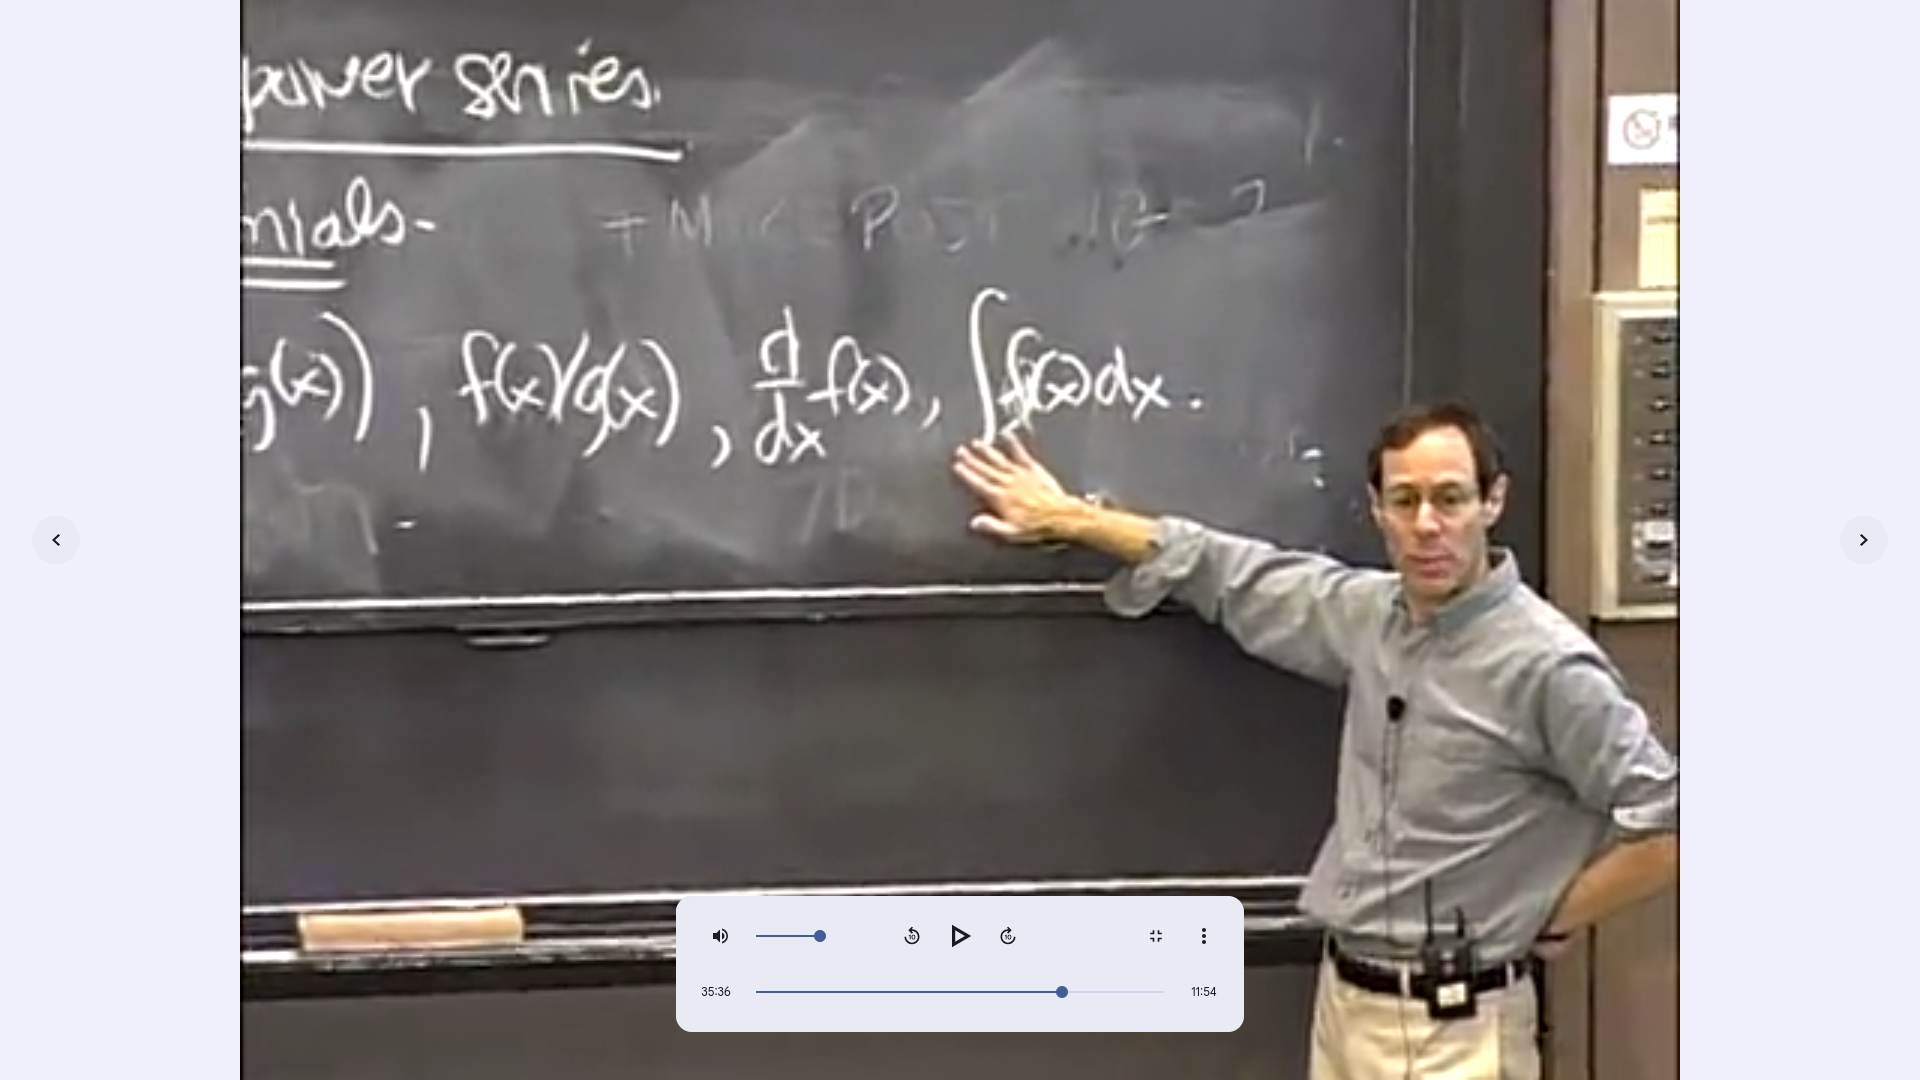 power series.
nials-
g(x)), f(x)/g(x), d/dx f(x), ∫f(x)dx.
10 10
35:36 11:54